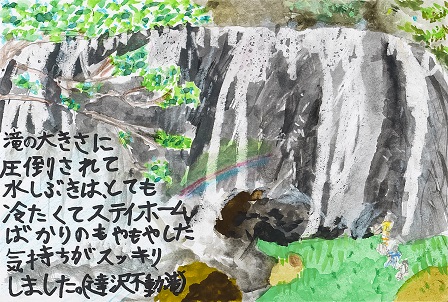 滝の大きさに
圧倒されて
水しぶきは、とても
冷たくてステイホーム
ばかりのもやもやした
気持ちがスッキリ
しました。(達沢不動滝)